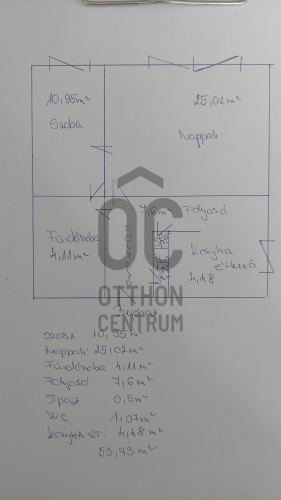 10,95m²
25,02m²
Szoba
Nappali
7,6m²
Folyosó
Fürdőszoba
4,11m²
Konyha
étkező
4,48
Bejárat
OC
OTTHON
CENTRUM
SZOBA 10,95m²
Nappali 25,02m²
Fürdőszoba 4,11m²
Folyosó 7,6m²
Spájz 0,5m²
WC 1,07m²
KONYHA ÉT. 4,48m²
53,73m²